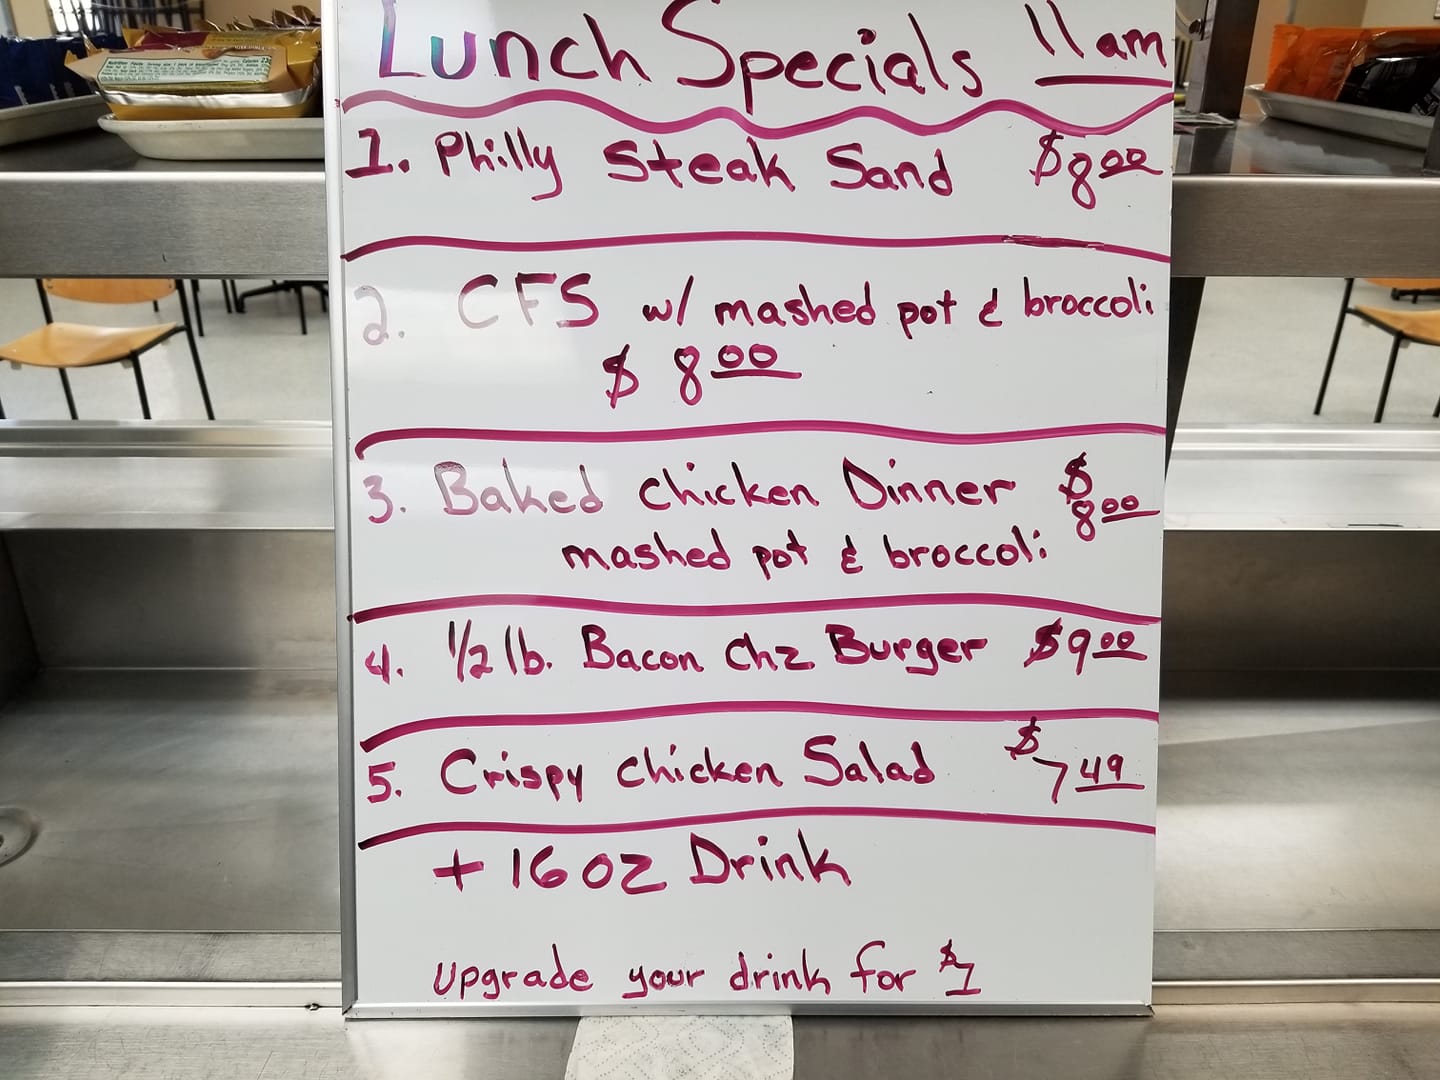 Lunch Specials 11am
1. Philly Steak Sand $8.00
2. CFS w/ mashed pot & broccoli
$8.00
3. Baked Chicken Dinner $8.00
mashed pot & broccoli
4. 1/2 lb. Bacon Chz Burger $9.00
5. Crispy Chicken Salad $7.49
+ 16oz Drink
upgrade your drink for $1
Nutrition Facts